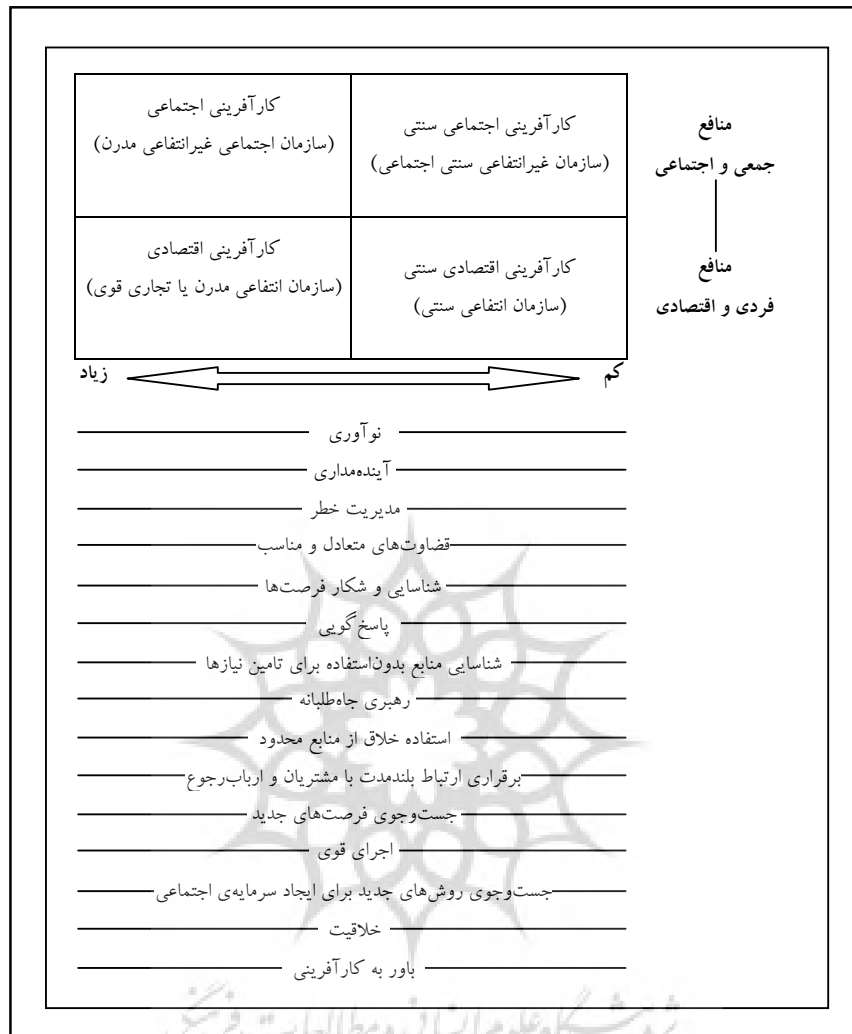 منافع
جمعی و اجتماعی
کارآفرینی اجتماعی سنتی
(سازمان غیرانتفاعی سنتی اجتماعی)
کارآفرینی اجتماعی
(سازمان اجتماعی غیرانتفاعی مدرن)
منافع
فردی و اقتصادی
کارآفرینی اقتصادی سنتی
(سازمان انتفاعی سنتی)
کارآفرینی اقتصادی
(سازمان انتفاعی مدرن یا تجاری قوی)
کم
زیاد
نوآوری
آینده‌مداری
مدیریت خطر
قضاوت‌های متعادل و مناسب
شناسایی و شکار فرصت‌ها
پاسخ‌گویی
شناسایی منابع بدون‌استفاده برای تامین نیازها
رهبری جاه‌طلبانه
استفاده خلاق از منابع محدود
برقراری ارتباط بلندمدت با مشتریان و ارباب‌رجوع
جست‌وجوی فرصت‌های جدید
اجرای قوی
جست‌وجوی روش‌های جدید برای ایجاد سرمایه‌ی اجتماعی
خلاقیت
باور به کارآفرینی
پژوهشگاه علوم انسانی و مطالعات فرهنگی